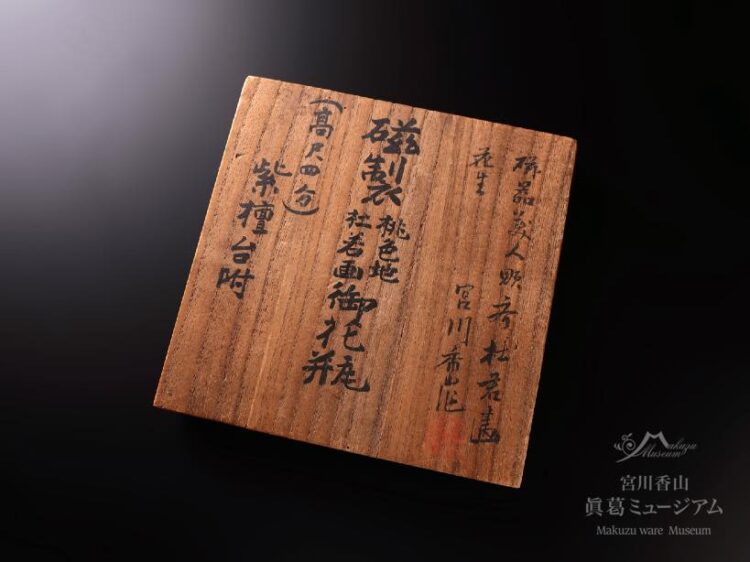 磁器美人 杜若画
花生
宮川香山作
磁製
桃色地
杜若画
御花瓶
(高尺四分)
紫檀台附
Makuzu
Museum
宮川香山
眞葛ミュージアム
Makuzu ware Museum